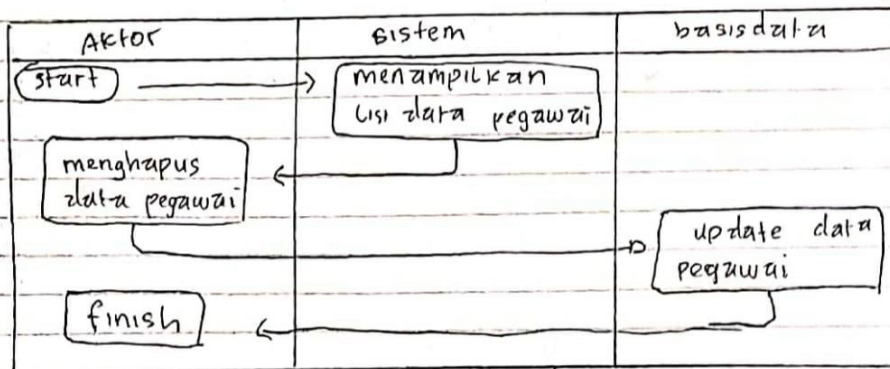 Aktor
sistem
basisdata
start
menampilkan
list data pegawai
menghapus
data pegawai
update data
pegawai
finish